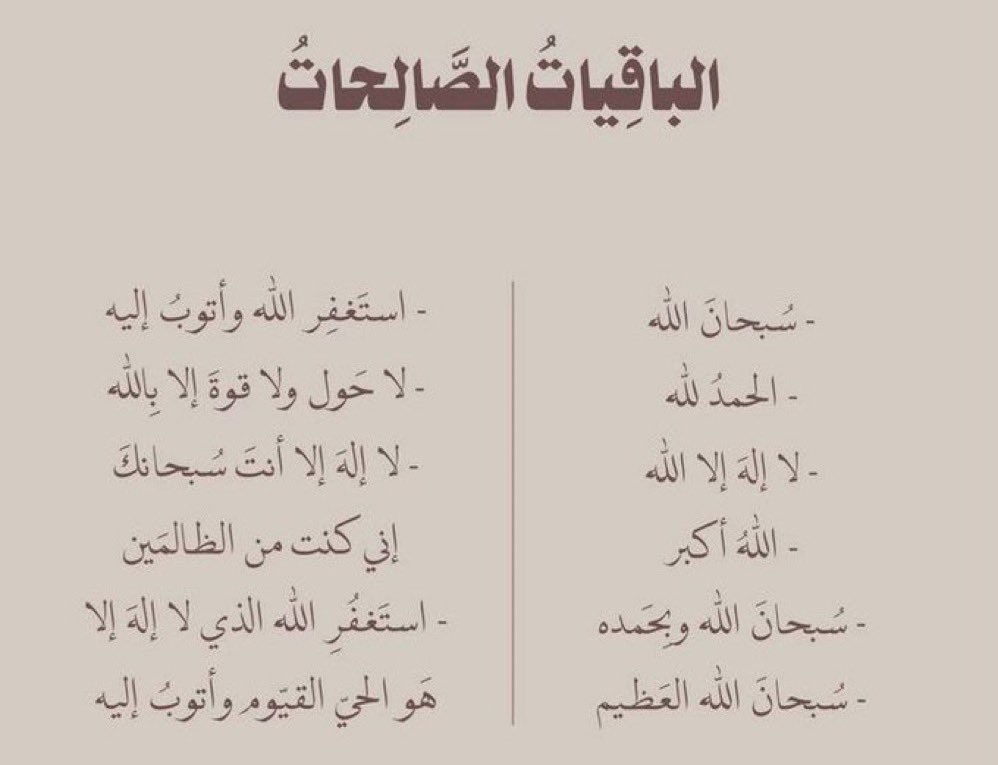 الباقِياتُ الصَّالِحاتُ
- سُبحانَ الله
- الحمدُ لله
- لا إلهَ إلا الله
- اللهُ أكبر
- سُبحانَ الله وبِحَمده
- سُبحانَ الله العَظيم
- استَغفِر الله وأتوبُ إليه
- لا حَول ولا قوةَ إلا بِالله
- لا إلهَ إلا أنتَ سُبحانكَ
إني كنت من الظالمَين
- استَغفُرِ الله الذي لا إلهَ إلا
هَو الحيّ القيّوم وأتوبُ إليه